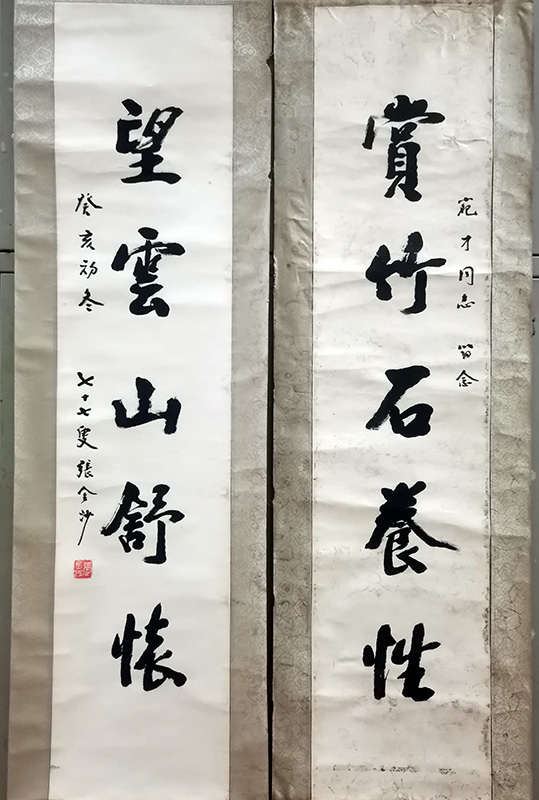 賞竹石養性
才同志 留念
望雲山舒懷
癸亥初冬
七十七叟張金沙